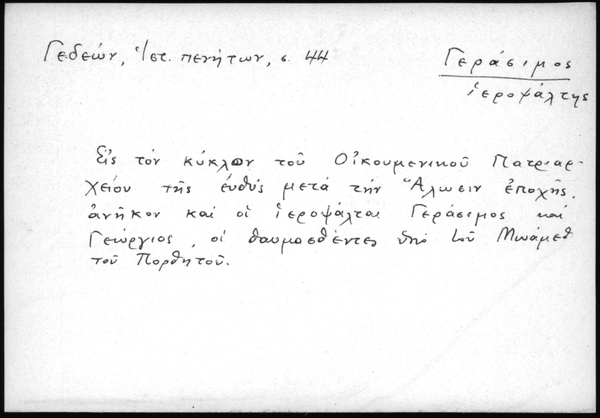 Γεδεών, Ἱστ. πενήτων, σ. 44
Γεράσιμος
ἱεροψάλτης
Εἰς τὸν κύκλον τοῦ Οἰκουμενικοῦ Πατριαρ-
χείου τῆς εὐθὺς μετὰ τὴν Ἅλωσιν ἐποχῆς,
ἀνῆκον καὶ οἱ ἱεροψάλται Γεράσιμος καὶ
Γεώργιος, οἱ θαυμασθέντες ὑπὸ τοῦ Μωάμεθ
τοῦ Πορθητοῦ.